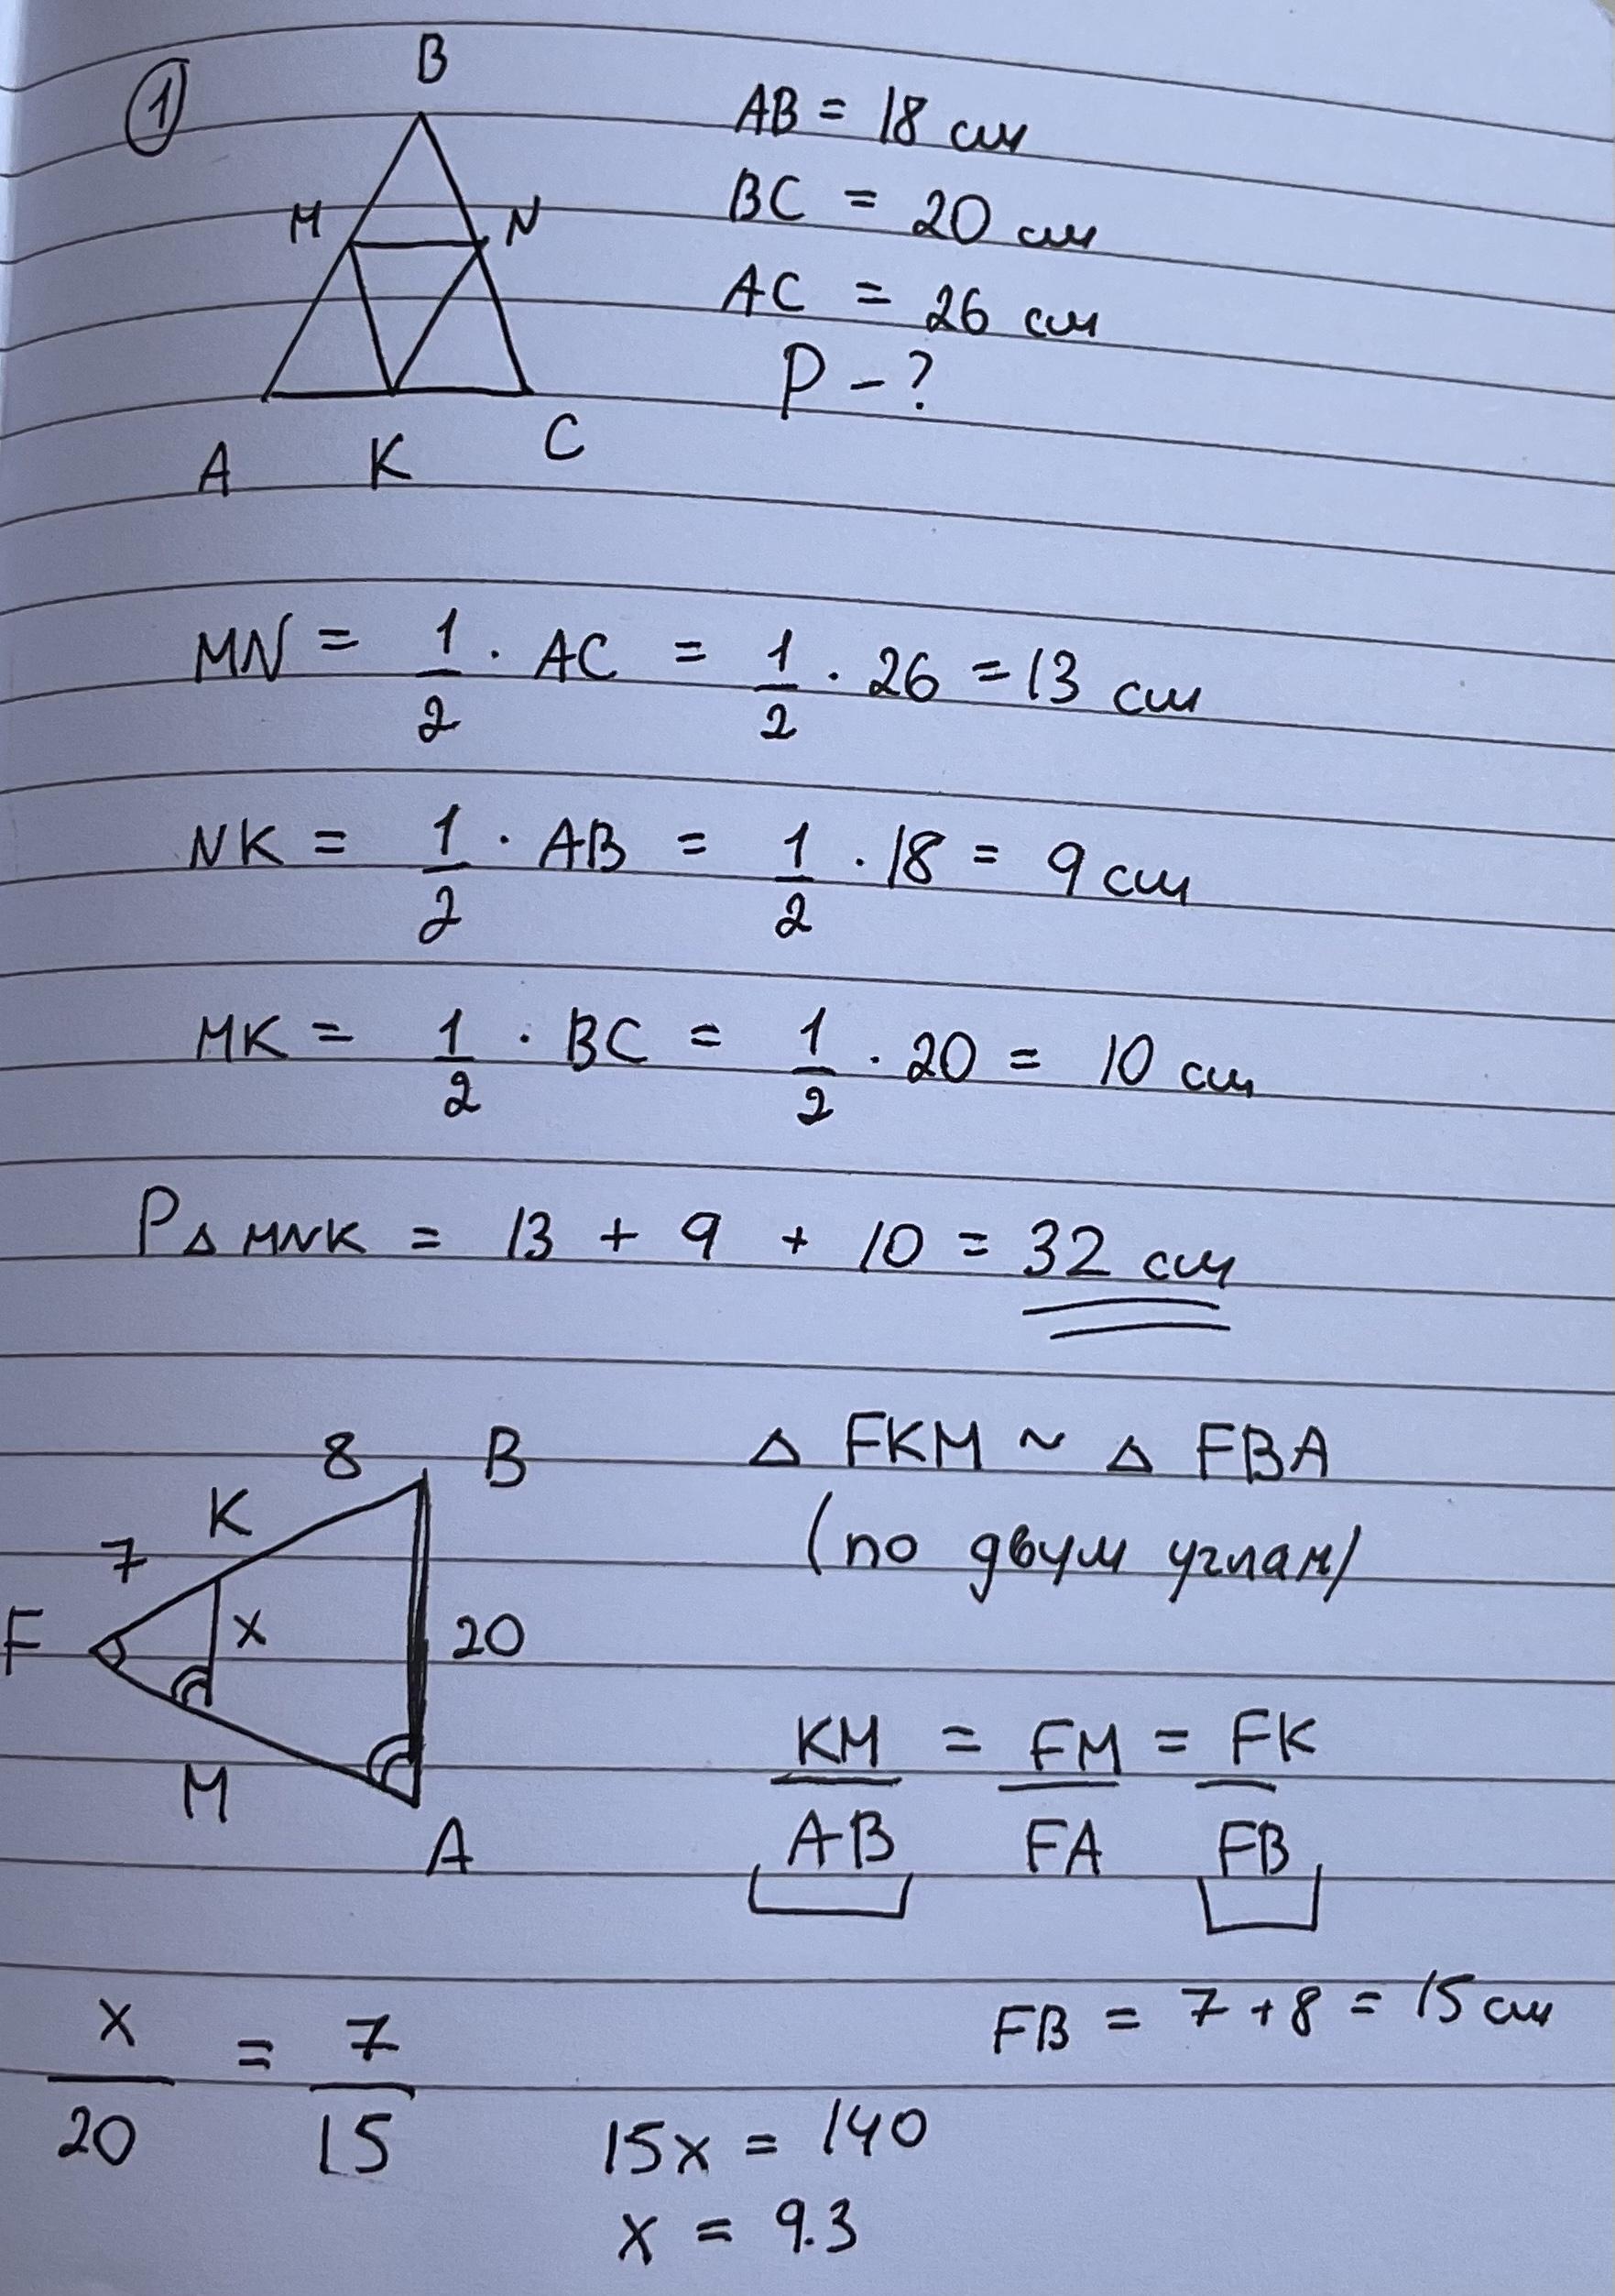 ①
B
M N
A K C
AB = 18 см
BC = 20 см
AC = 26 см
P - ?
MN = 1/2 · AC = 1/2 · 26 = 13 см
NK = 1/2 · AB = 1/2 · 18 = 9 см
MK = 1/2 · BC = 1/2 · 20 = 10 см
P△MNK = 13 + 9 + 10 = 32 см
8 B
K
7
F x 20
M
A
△ FKM ~ △ FBA
(по двум углам)
KM/AB = FM/FA = FK/FB
FB = 7 + 8 = 15 см
x/20 = 7/15
15x = 140
x = 9.3